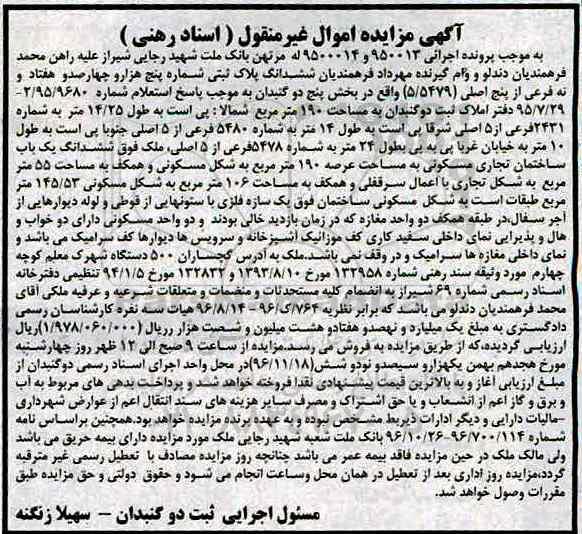 آگهی مزایده اموال غیرمنقول ( اسناد رهنی )
به موجب پرونده اجرائی ۹۵۰۰۰۱۳ و ۹۵۰۰۰۱۴ له مرتهن بانک ملت شهید رجایی شیراز علیه راهن محمد
فرهمندیان دندلو و وام گیرنده مهرداد فرهمندیان ششدانگ پلاک ثبتی شماره پنج هزارو چهارصدو هفتاد و
نه فرعی از پنج اصلی (۵/۵۴۷۹) واقع در بخش پنج دو گنبدان به موجب پاسخ استعلام شماره ۲/۹۵/۹۶۸۰-
۹۵/۷/۲۹ دفتر املاک ثبت دوگنبدان به مساحت ۱۹۰ متر مربع شمالا : پی است به طول ۱۴/۲۵ متر به شماره
۲۴۳۱فرعی از۵ اصلی شرقا پی است به طول ۱۴ متر به شماره ۵۴۸۰ فرعی از ۵ اصلی جنوبا پی است به طول
۱۰ متر به خیابان غربا پی به پی بطول ۲۴ متر به شماره ۵۴۷۸فرعی از ۵ اصلی، ملک فوق ششدانگ یک باب
ساختمان تجاری مسکونی به مساحت عرصه ۱۹۰ متر مربع به شکل مسکونی و همکف به مساحت ۵۵ متر
مربع به شکل تجاری با اعمال سرقفلی و همکف به مساحت ۱۰۶ متر مربع به شکل مسکونی ۱۴۵/۵۳ متر
مربع طبقات است به شکل مسکونی ساختمان فوق یک سازه فلزی با ستونهایی از قوطی و لوله دیوارهایی از
آجر سفال،در طبقه همکف دو واحد مغازه که در زمان بازدید خالی بودند و دو واحد مسکونی دارای دو خواب و
هال و پذیرایی نمای داخلی سفید کاری کف موزائیک آشپزخانه و سرویس ها دیوارها کف سرامیک می باشد و
نمای داخلی مغازه ها سرامیک و در وقف نمی باشد.ملک به آدرس گچساران ۵۰۰ دستگاه شهرک معلم کوچه
چهارم مورد وثیقه سند رهنی شماره ۱۳۲۹۵۸ مورخ ۱۳۹۳/۸/۱۰ و ۱۳۲۸۳۲ مورخ ۹۴/۱/۵ تنظیمی دفترخانه
اسناد رسمی شماره ۶۹ شیراز به انضمام کلیه مستحدثات و منضمات و متعلقات شرعیه و عرفیه ملکی آقای
محمد فرهمندیان دندلو می باشد که برابر نظریه ۷۶۴/ک/۹۶ -۹۶/۸/۱۴ هیات سه نفره کارشناسان رسمی
دادگستری به مبلغ یک میلیارد و نهصدو هفتادو هشت میلیون و شصت هزار رریال (۱/۹۷۸/۰۶۰/۰۰۰)ریال
ارزیابی گردیده،که از طریق مزایده به فروش می رسد.مزایده از ساعت ۹ صبح الی ۱۲ ظهر روز چهارشنبه
مورخ هجدهم بهمن یکهزارو سیصدو نودو شش(۹۶/۱۱/۱۸)در محل واحد اجرای اسناد رسمی دوگنبدان از
مبلغ ارزیابی آغاز و به بالاترین قیمت پیشنهادی نقدا فروخته خواهد شد و پرداخت بدهی های مربوط به آب
و برق و گاز اعم از انشعاب و یا حق اشتراک و مصرف سایر هزینه های سند انتقال اعم از عوارض شهرداری
-مالیات دارایی و دیگر ادارات ذیربط مشخص نبوده و به عهده برنده مزایده خواهد بود.همچنین براساس نامه
شماره ۹۶/۷۰۰/۱۱۴-۹۶/۱۰/۲۶ بانک ملت شعبه شهید رجایی ملک مورد مزایده دارای بیمه حریق می باشد
ولی مالک ملک در حین مزایده فاقد بیمه عمر می باشد چنانچه روز مزایده مصادف با تعطیل رسمی غیر مترقبه
گردد،مزایده روز اداری بعد از تعطیل در همان محل وساعت انجام می شود و حقوق دولتی و حق مزایده طبق
مقررات وصول خواهد شد.
مسئول اجرایی ثبت دو گنبدان – سهیلا زنگنه